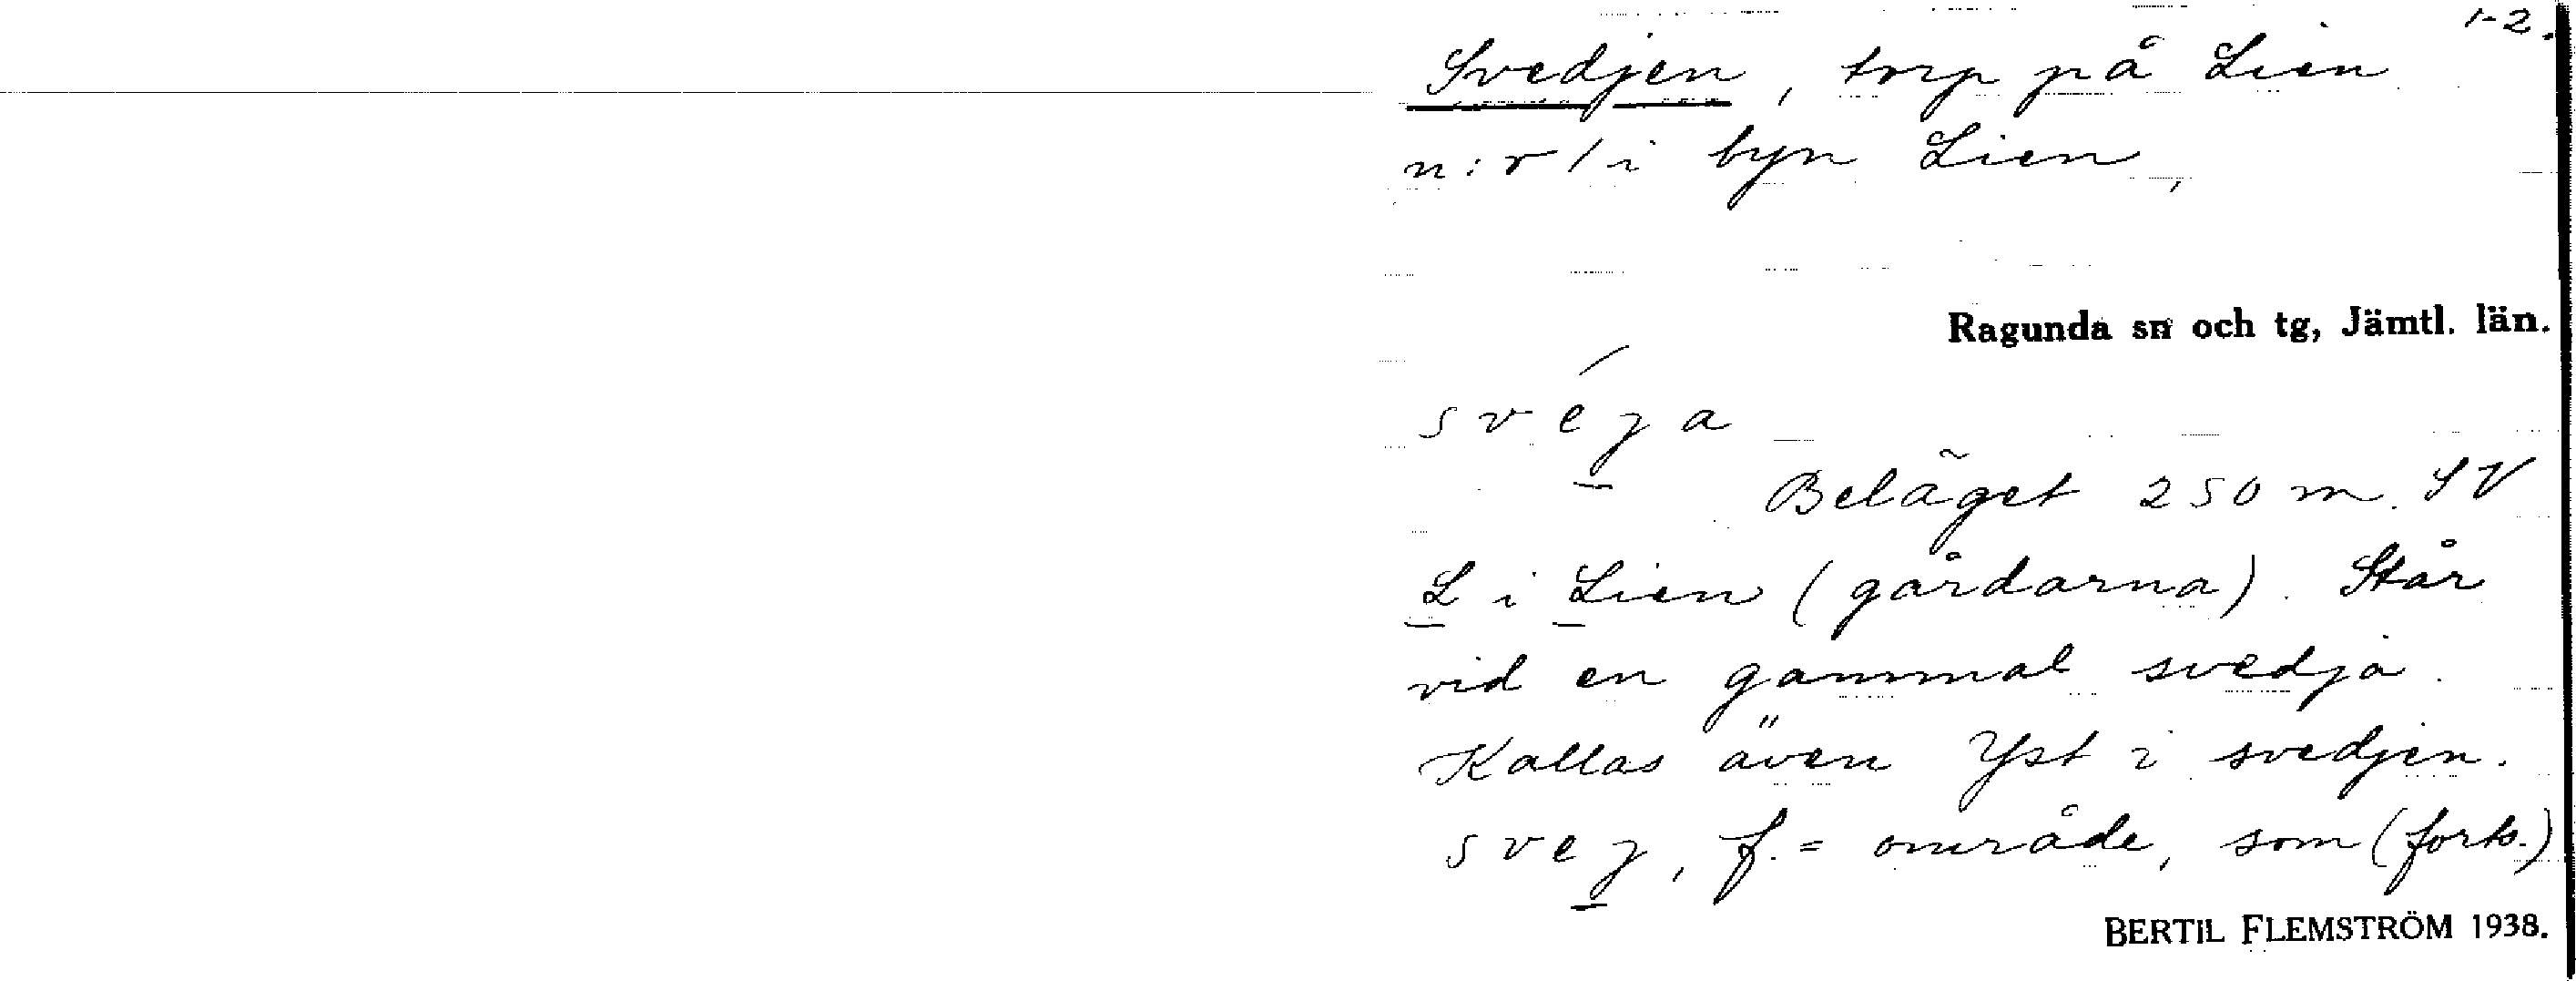 1-2.
Svedjen, torp på Lien
n:r 1 i byn Lien,
Ragunda sn och tg, Jämtl. län.
svéja
Beläget 250 m. SV
L i Lien (gårdarna). Står
vid en gammal svedja.
Kallas även Yst i svedjen.
svej, f. = område, som (forts.)
BERTIL FLEMSTRÖM 1938.